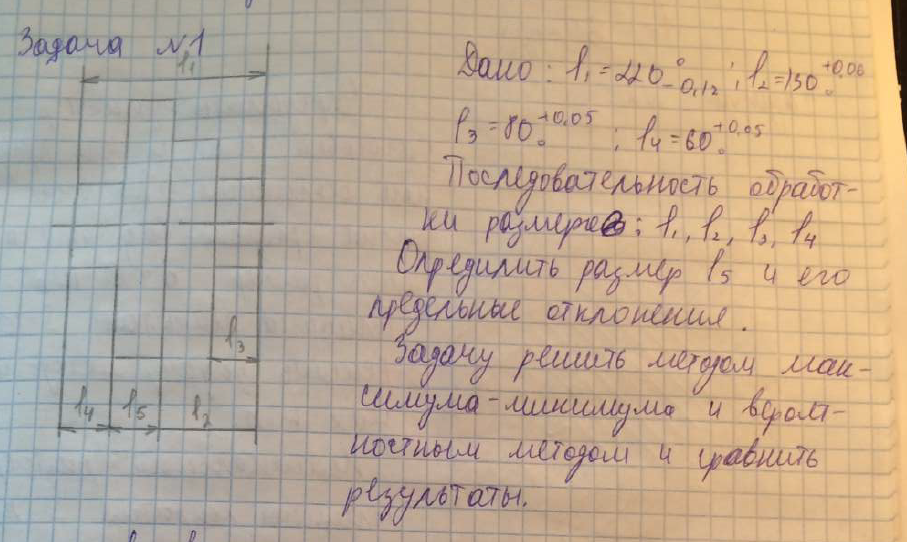 Задача №1
l₁
Дано: l₁=220⁰₋₀,₁₂; l₂=130⁺⁰,⁰⁶₀
l₃=80⁺⁰,⁰⁵₀ ; l₄=60⁺⁰,⁰⁵₀
Последовательность обработ-
ки размеров: l₁, l₂, l₃, l₄
Опредилить размер l₅ и его
предельные отклонения.
Задачу решить методом мак-
симума-минимума и вероят-
ностным методом и сравнить
результаты.
l₃
l₄ l₅ l₂